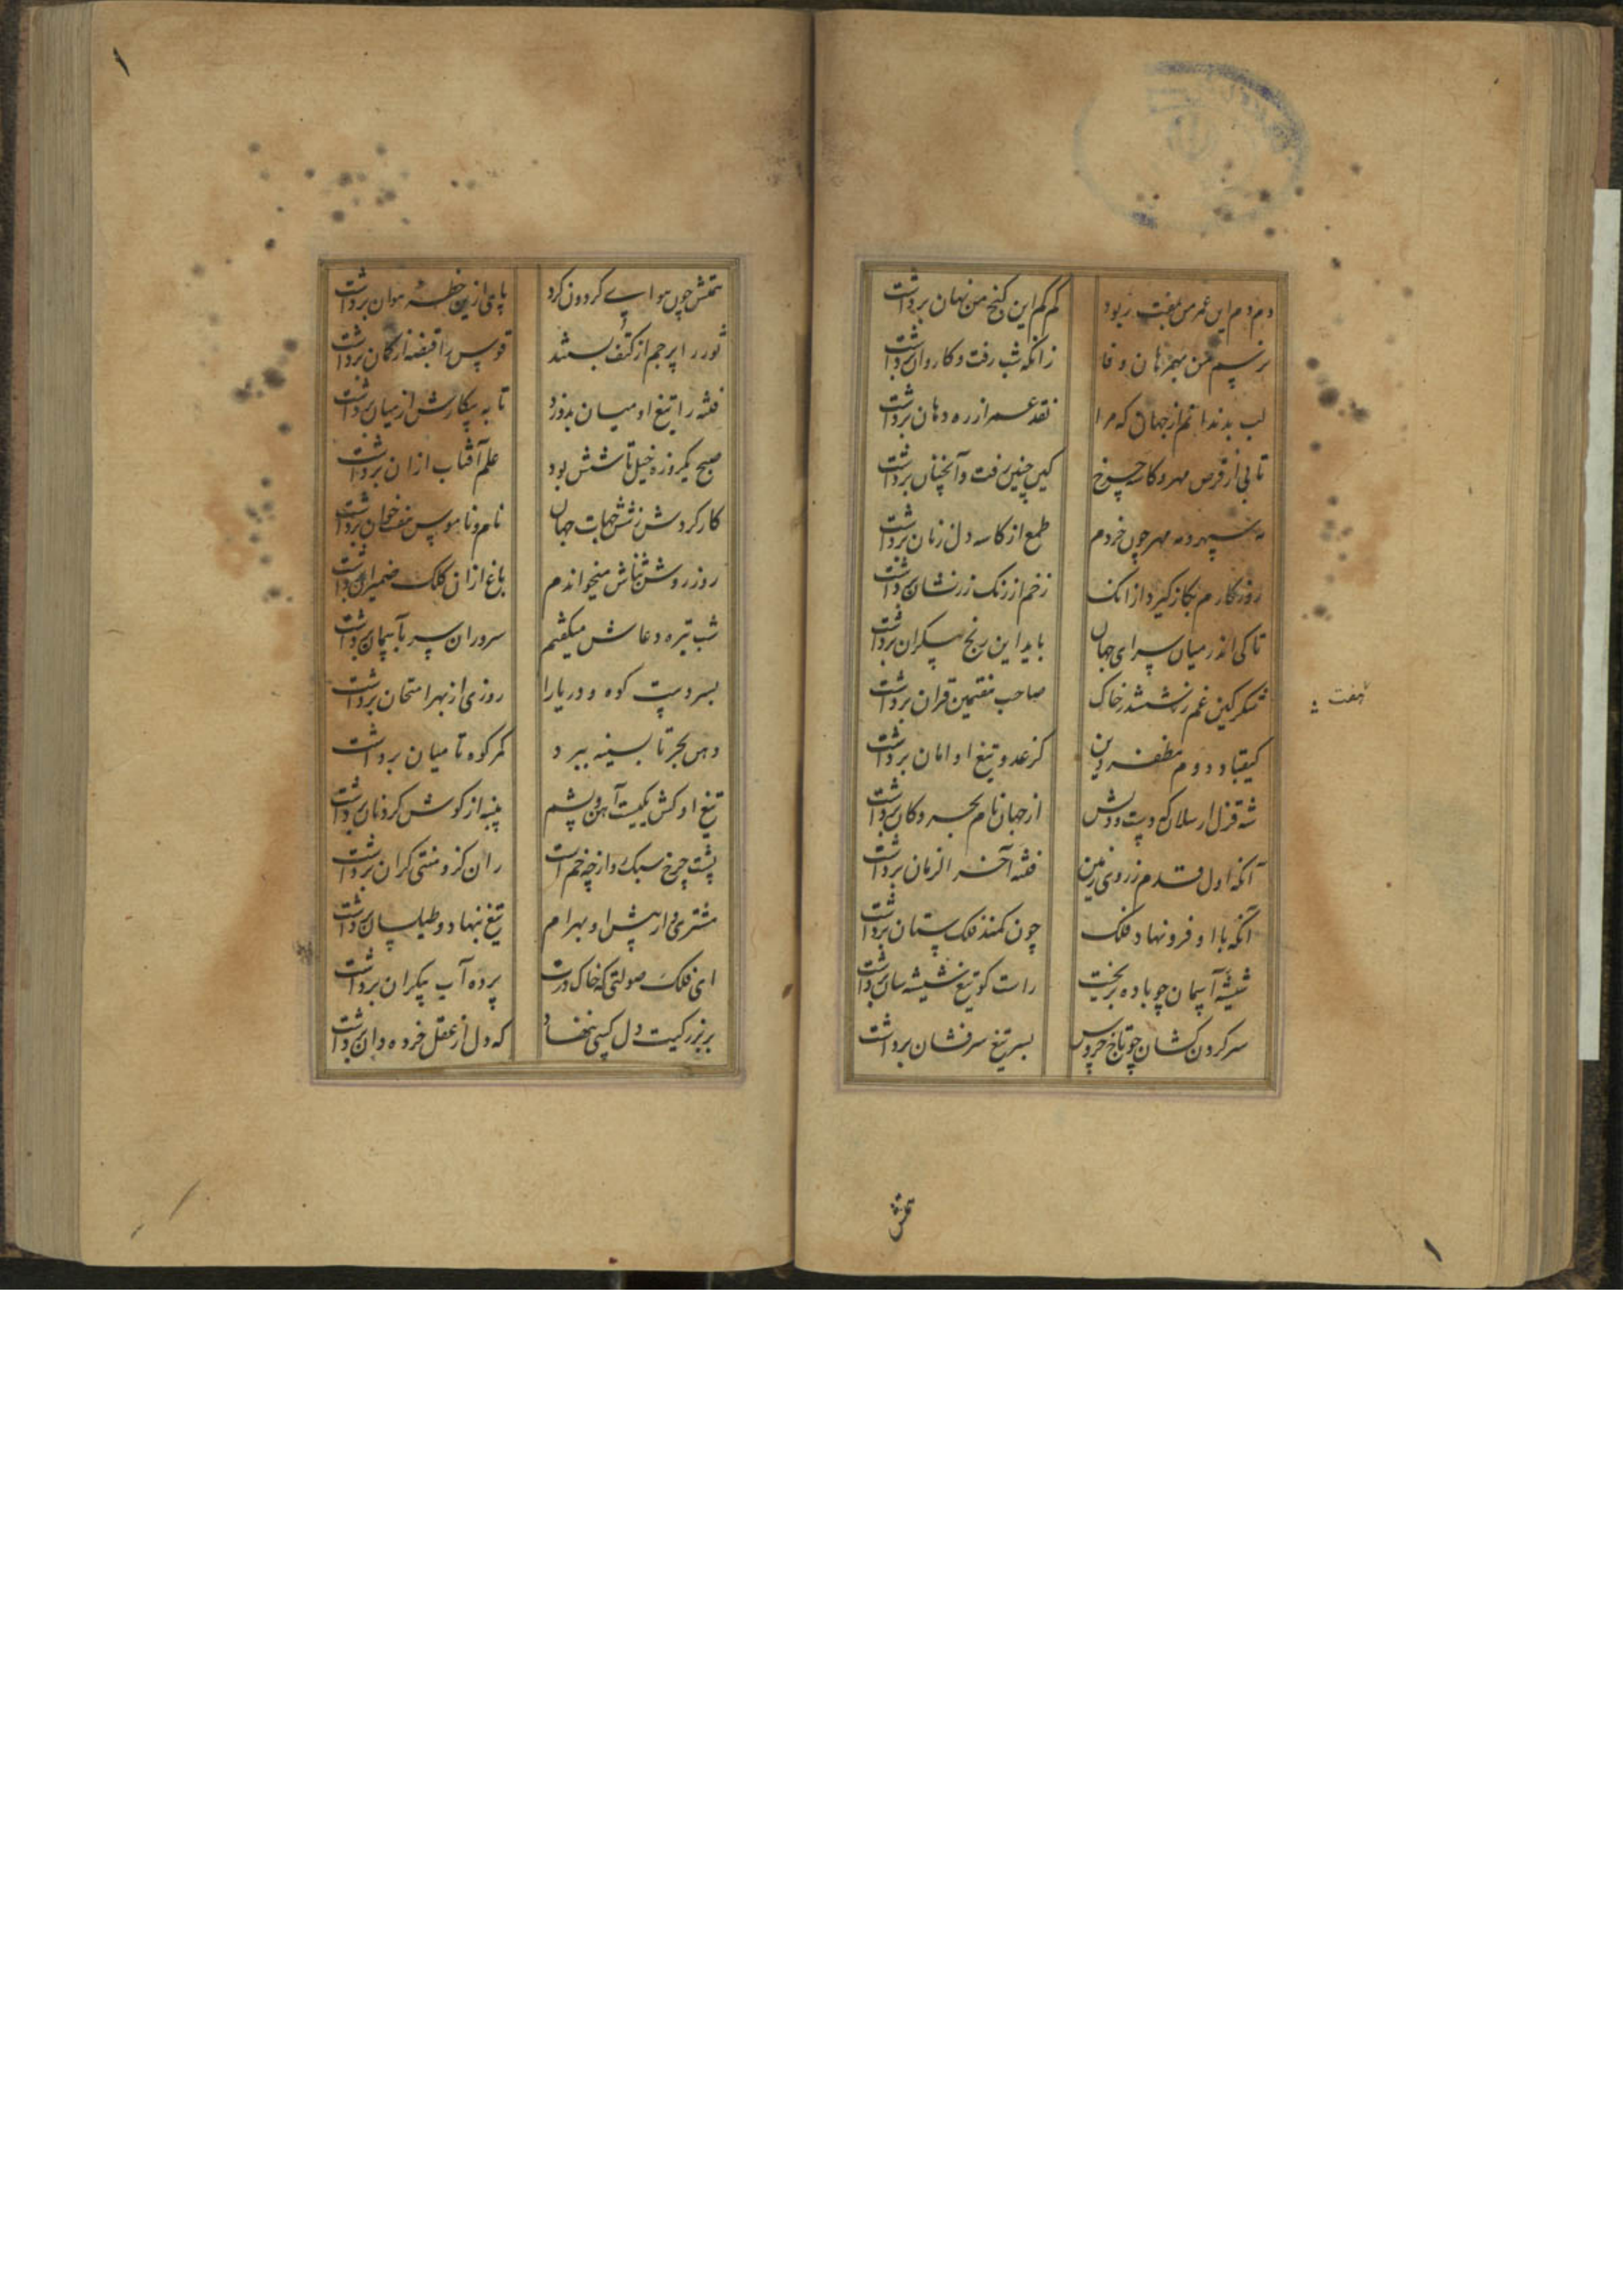 دم دم این عمر من بعبث بربود کم کم این کنج من نهان برداشت
نرسم من بهمرهان وفا زانکه شب رفت و کاروان برداشت
لب بدندانم از جهان که مرا نقد عمر از ره دهان برداشت
تابی از قرص مهر و کاسه چرخ کین چنین رفت و آنچنان برداشت
مه سپهر و مه مهر چون خردم طمع از کاسه دل زنان برداشت
روزکارم بکاز کیرد از آنک زخم از زنک زر نشان برداشت
تا کی اندر میان سرای جهان باید این رنج بیکران برداشت
شکر کین غم نشست در خاک صاحب هفتمین قران برداشت
هفت
کیقباد دوم مظفر دین کز عدو تیغ او امان برداشت
شه قزل ارسلان که دست و دلش از جهان نام بحر و کان برداشت
آنکه اول قدم ز روی زمین فتنه آخر الزمان برداشت
آنکه با او فرو نهاد فلک چون کمند فلک ستان برداشت
شیشه آسمان چو باده بریخت راست کو تیغ شیشه سان برداشت
سر کردن کشان چو تاج خروس بسر تیغ سرفشان برداشت
همتش
همتش چون هوای کردون کرد پای ازین خطه هوان برداشت
ثور را پرچم از کتف بستد قوس را قبضه از کمان برداشت
فتنه را تیغ او میان بدو زد تا به پیکارش از میان برداشت
صبح یکروزه خیل تاشش بود علم آفتاب از آن برداشت
کار کردش ز شش جهات جهان نام و ناموس هفت خوان برداشت
روز روشن ثناش میخواندم باغ از آن کلک ضمیران برداشت
شب تیره دعاش میکفتم سروران سر بآسمان برداشت
بسر دست کوه و دریا را روزی از بهر امتحان برداشت
دهن بحر تا بسینه ببرد کمر کوه تا میان برداشت
تیغ او کش یکیست آهن و پشم پنبه از کوش کردنان برداشت
پشت چرخ سبک رو از چه خم است ران کزو منتی کران برداشت
مشتری وار پیش او بهرام تیغ بنهاد و طیلسان برداشت
ای فلک صولتی که خاک درت پرده آب پیکران برداشت
بر بزرکیت دل کسی ننهاد که دل از عقل خرده دان برداشت